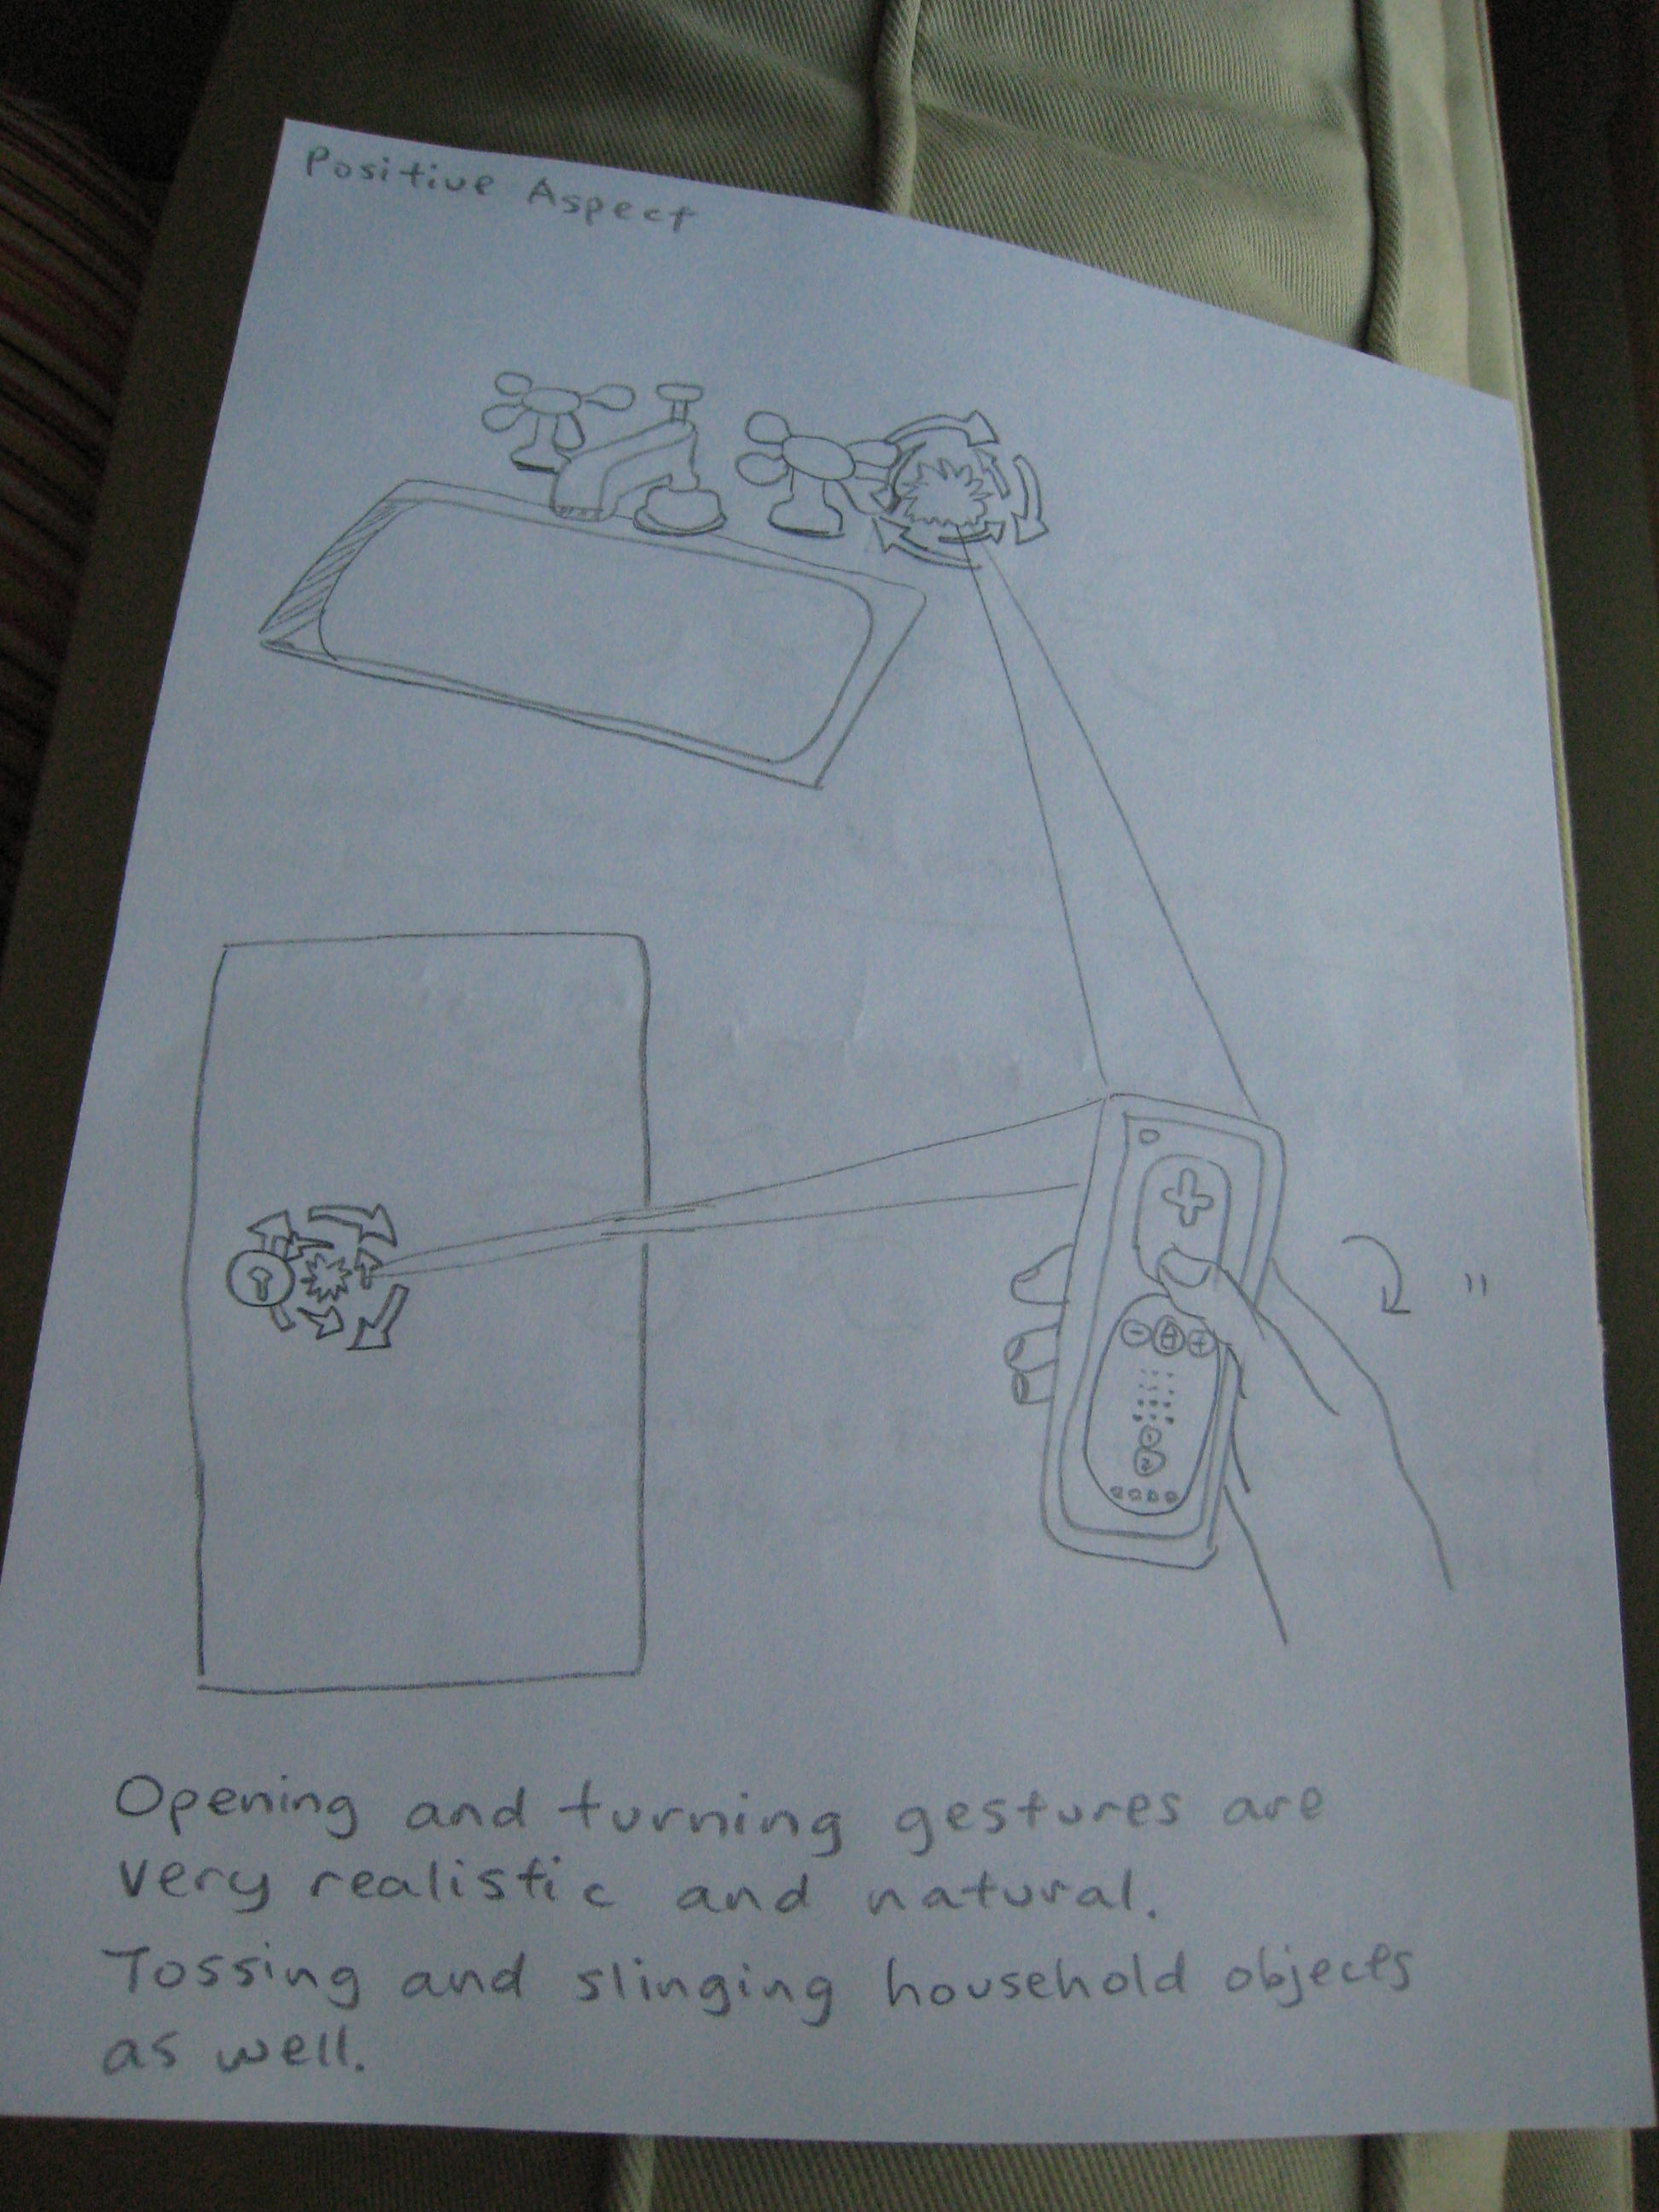 Positive Aspect
Opening and turning gestures are
very realistic and natural.
Tossing and slinging household objects
as well.